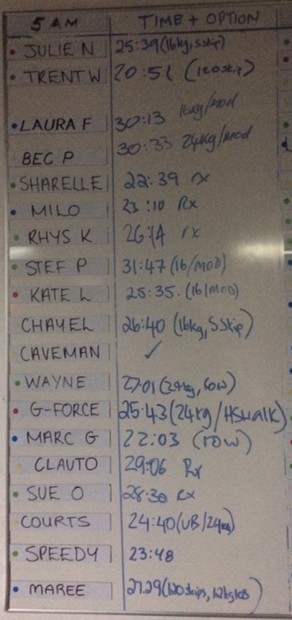 5 AM TIME + OPTION
JULIE N 25:39 (16kg, Sskip)
TRENT W 20:51 (120 skip)
LAURA F 30:13 16kg/mod
BEC P 30:33 24kg/mod
SHARELLE 22:39 rx
MILO 23:10 Rx
RHYS K rx
STEF P 31:47 (16/MOD)
KATE L 25:35 (16/MOD)
CHAYEL 26:40 (16kg, Sskip)
CAVEMAN ✓
WAYNE 27:01
G-FORCE 25:43 (24kg/HSwalk)
MARC G 22:03 (row)
CLAUTO 29:06 Rx
SUE O 28:30 Rx
COURTS 24:40 (UB/24kg)
SPEEDY 23:48
MAREE 27:29 (120 skips, 12kg KB)